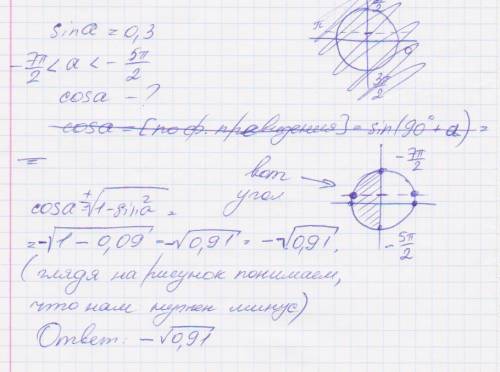 sin a = 0,3
π
π/2
0
3π/2
- 7π/2 < a < - 5π/2
cos a - ?
cos a = [по ф. приведения] = sin(90° + a) =
=
вот угол
- 7π/2
- 5π/2
cos a = ±√(1 - sin²a) =
= -√(1 - 0,09) = -√0,91 = -√0,91.
(глядя на рисунок понимаем,
что нам нужен минус)
Ответ: -√0,91